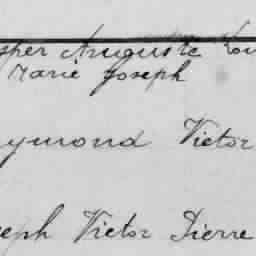 sper Auguste Lou
Marie Joseph
ymond Victor
seph Victor Pierre